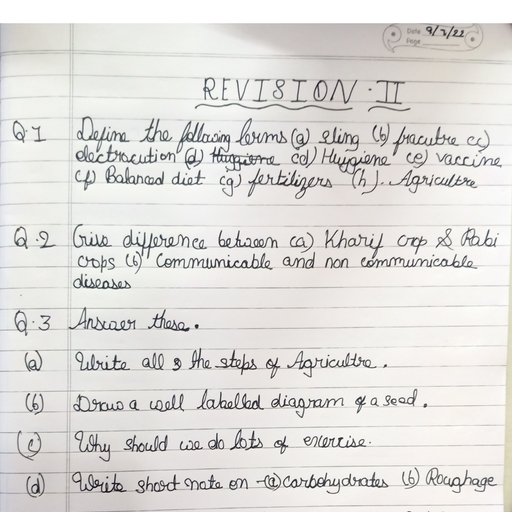 Date 9/7/22
Page
REVISION - II
Q.1 Define the following terms (a) sling (b) fracutre (c)
electrocution (d) Hyygiene (d) Huygiene (e) vaccine
(f) Balanced diet (g) fertilizers (h). Agricultre
Q.2 Give difference between (a) Kharif crop & Rabi
crops (b) Communicable and non communicable
diseases
Q.3 Answer these.
(a) Write all the steps of Agricultre.
(b) Draw a well labelled diagram of a seed.
(c) Why should we do lots of exercise.
(d) Write short note on - (a) carbohydrates (b) Roughage